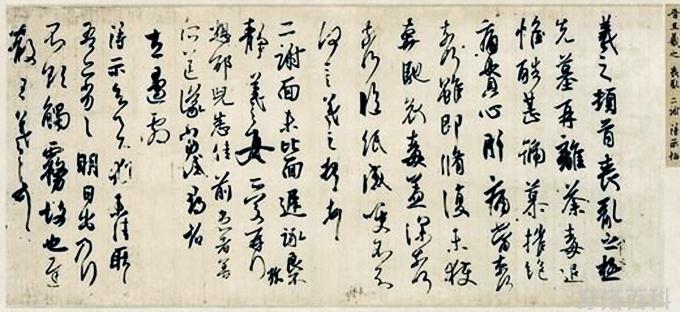 晉王羲之 喪亂 二謝 得示帖
羲之頓首喪亂之極
先墓再離荼毒追
惟酷甚號慕摧絶
痛貫心肝痛當奈何
奈何雖即脩復未獲
奔馳哀毒益深奈何
奈何臨紙感哽不知
何言羲之頓首頓首
二謝面未比面遲詠良不
靜羲之女愛再拜
想邵兒悉佳前患者善
所送議當試尋省
左邊劇
得示知足下猶未佳耿耿
吾亦劣劣明日出乃行
不欲觸霧故也遲
散王羲之頓首